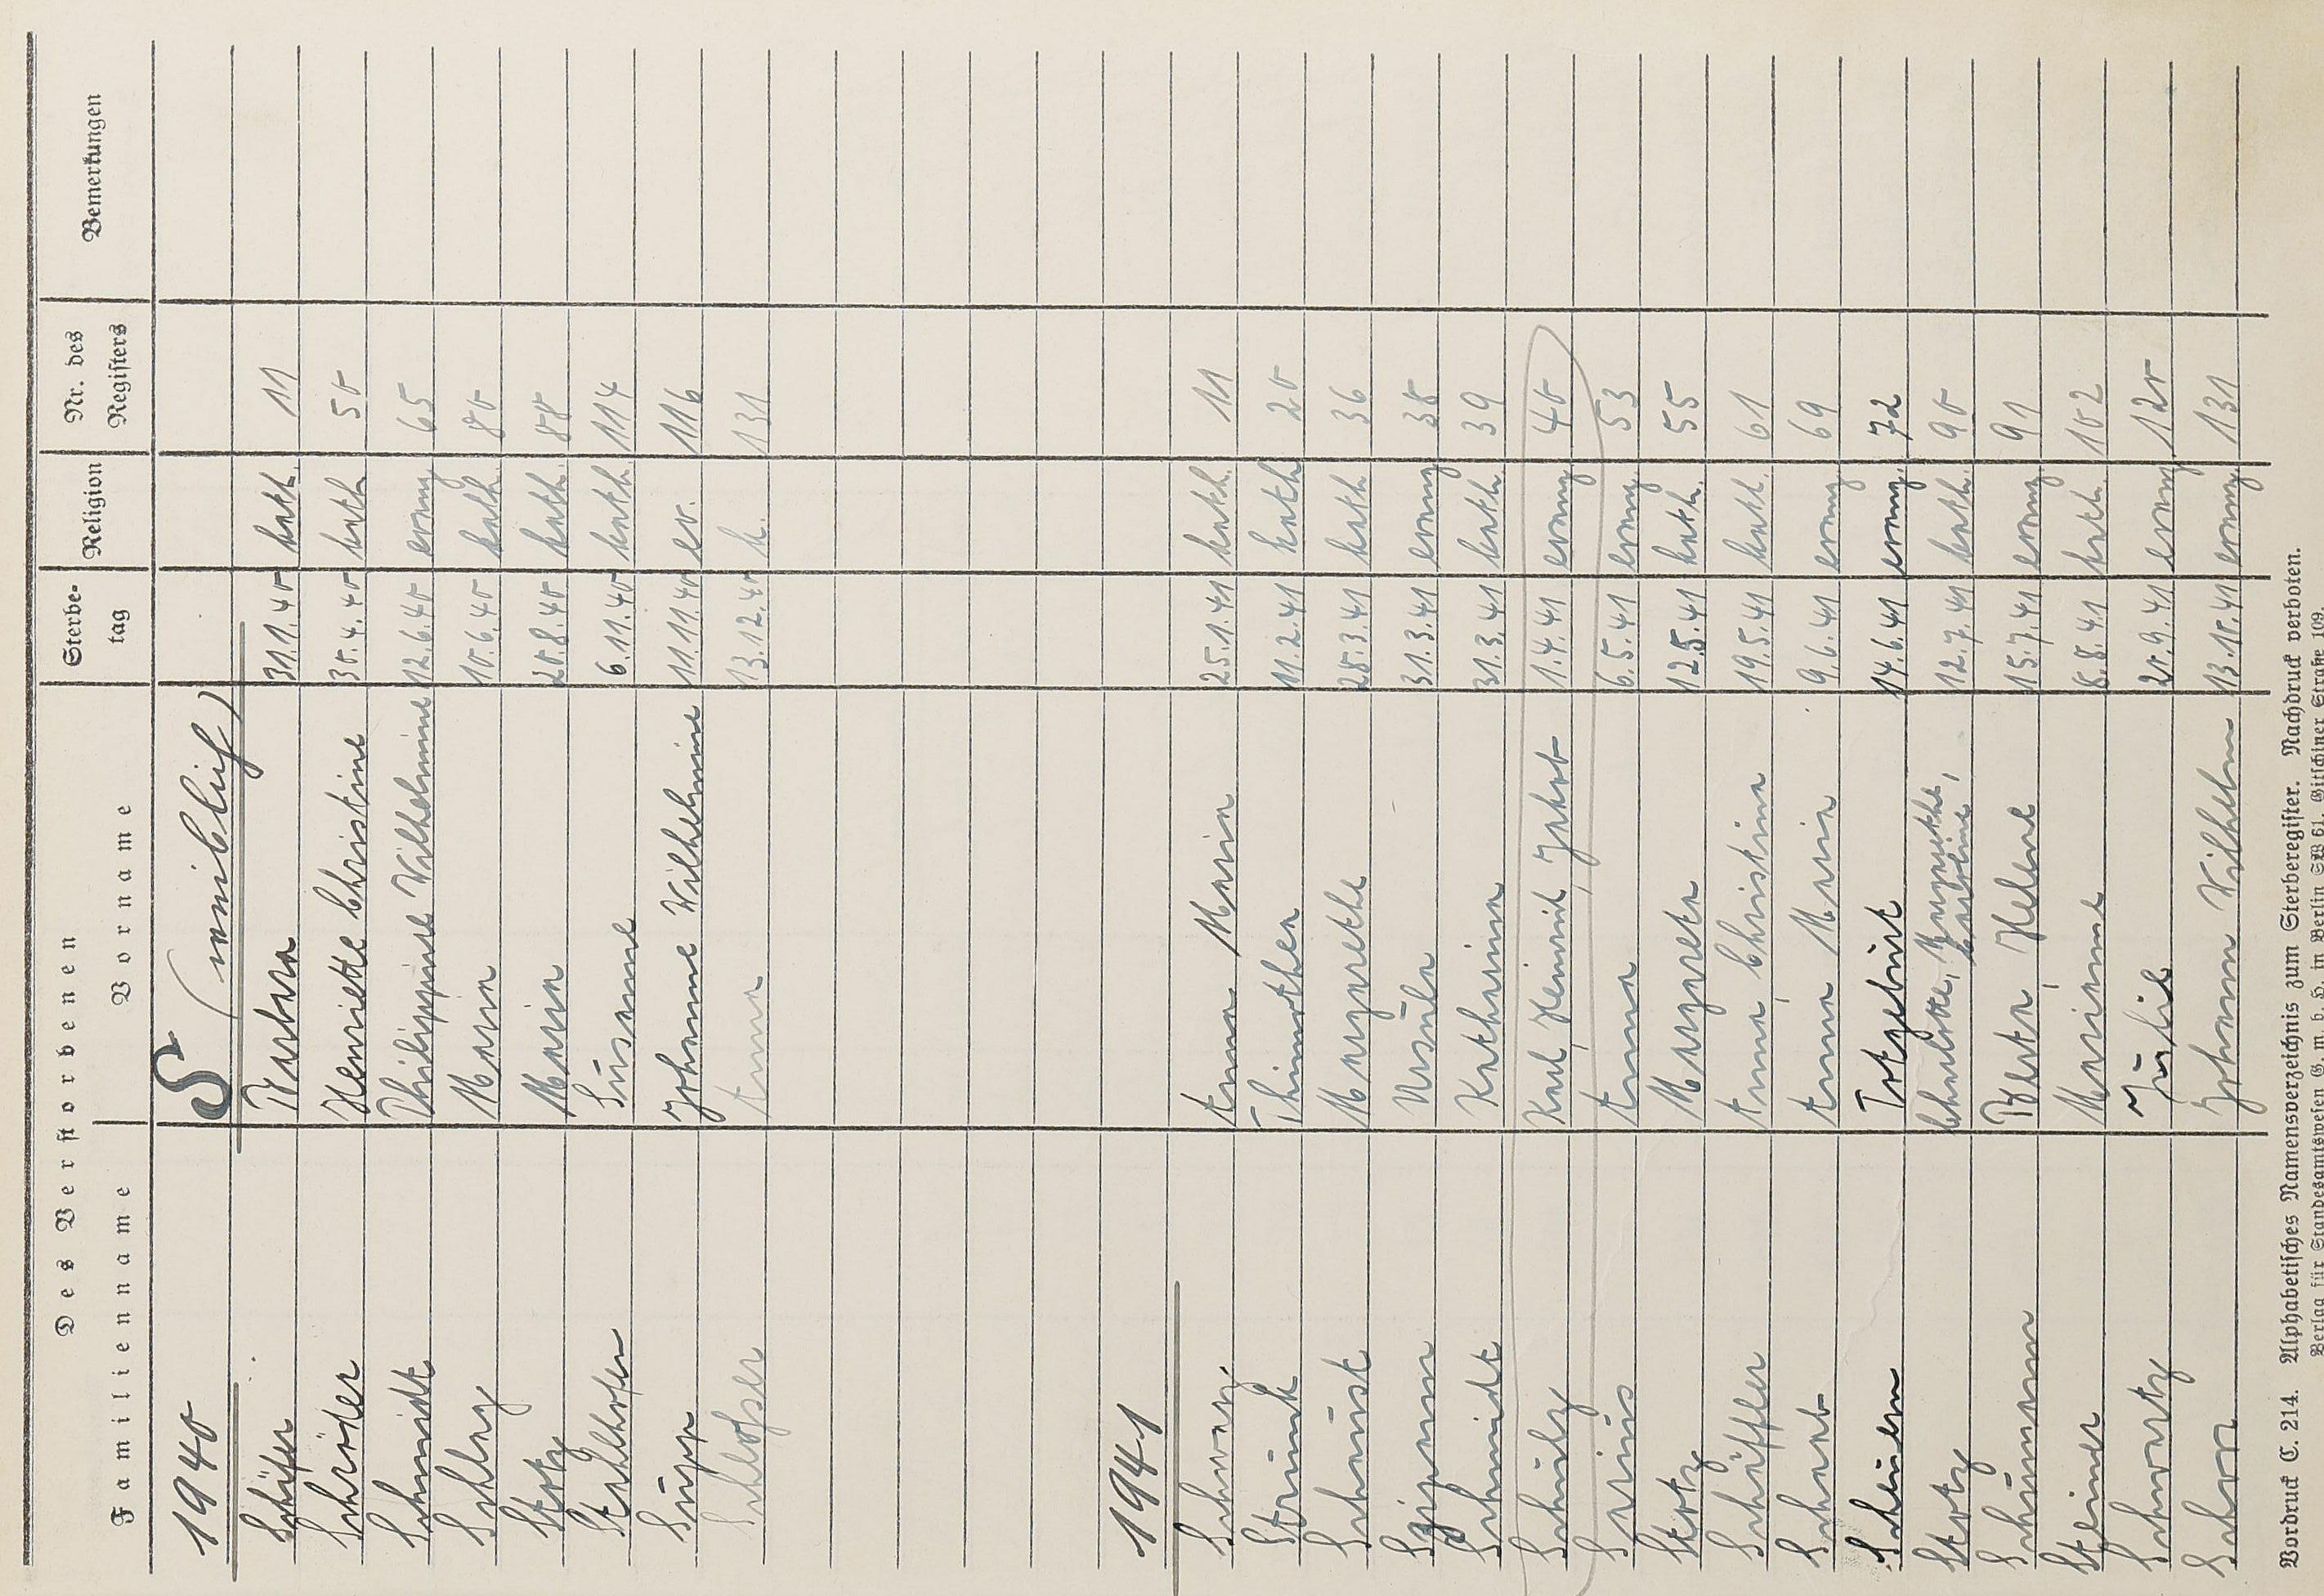 Des Verstorbenen
Familienname Vorname Sterbe- tag Religion Nr. des Registers Bemerkungen
1940 S (weiblich)
Schäfer Barbara 31.1.40 kath. 11
Schröder Henriette Christine 30.4.40 kath 50
Schmidt Philippine Wilhelmine 12.6.40 evang 65
Schlag Maria 10.6.40 kath. 80
Stotz Maria 20.8.40 kath. 88
Stahlhofen Susanne 6.11.40 kath. 114
Supp Johanne Wilhelmine 11.11.40 ev. 116
Schlosser Anna 13.12.40 k. 131
1941
Schwarz. Anna Maria 25.1.41 kath. 11
Strunk Thimothea 11.2.41 kath 20
Schaust Margarethe 28.3.41 kath 36
Ursula 31.3.41 evang 38
Schmidt Katharina 31.3.41 kath. 39
Schulz Karl, Heinrich, Jakob 1.4.41 evang 40
Anna 6.5.41 evang. 53
Stotz Margareta 12.5.41 kath. 55
Schäffler Anna, Christina 19.5.41 kath. 61
Schaab Anna Maria 9.6.41 evang 69
Totgeburt 14.6.41 evang. 72
Stotz Charlotte, Margarethe, Karoline, 12.7.41 kath. 90
Schümann Berta, Helene 15.7.41 evang 91
Marianne 8.8.41 kath. 102
Schwartz Julie 20.9.41 evang 120
Schorr Johann Wilhelm 13.10.41 evang 131
Vordruck C. 214. Alphabetisches Namensverzeichnis zum Sterberegister. Nachdruck verboten.
Verlag für Standesamtswesen G. m. b. H. in Berlin SW 61, Gitschiner Straße 109.